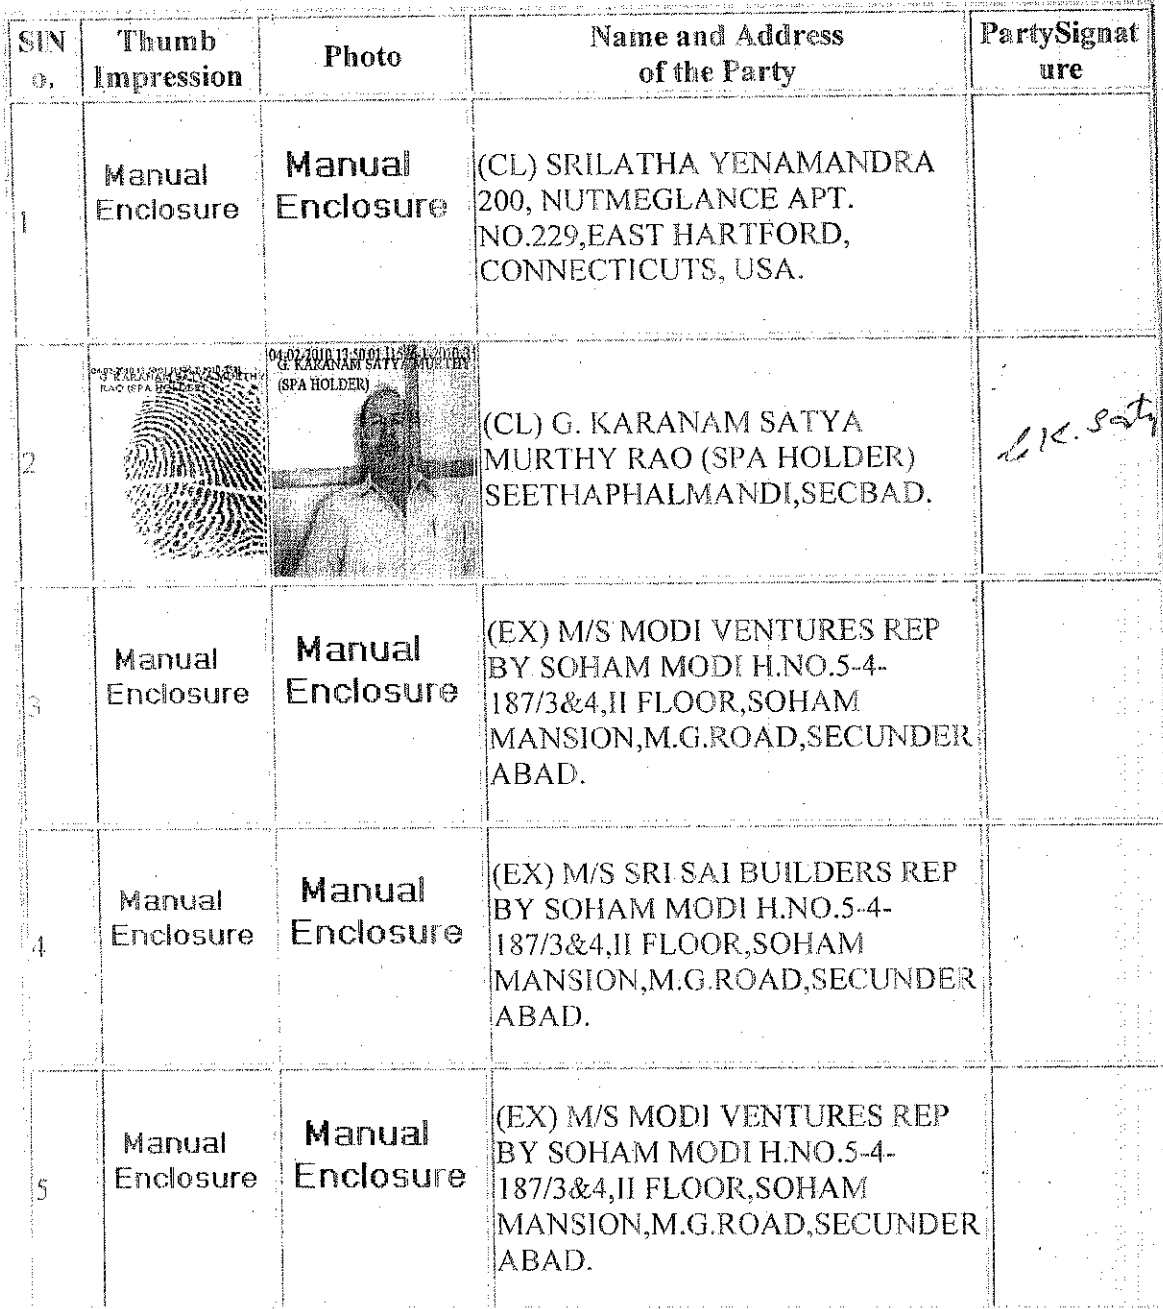 SlN Thumb Photo Name and Address PartySignat
o. Impression of the Party ure
1
Manual
Enclosure
Manual
Enclosure
(CL) SRILATHA YENAMANDRA
200, NUTMEGLANCE APT.
NO.229,EAST HARTFORD,
CONNECTICUTS, USA.
2
G. KARANAM SATYA MURTHY
RAO (SPA HOLDER)
G. KARANAM SATYA MURTHY
(SPA HOLDER)
(CL) G. KARANAM SATYA
MURTHY RAO (SPA HOLDER)
SEETHAPHALMANDI,SECBAD.
3
Manual
Enclosure
Manual
Enclosure
(EX) M/S MODI VENTURES REP
BY SOHAM MODI H.NO.5-4-
187/3&4,II FLOOR,SOHAM
MANSION,M.G.ROAD,SECUNDER
ABAD.
4
Manual
Enclosure
Manual
Enclosure
(EX) M/S SRI SAI BUILDERS REP
BY SOHAM MODI H.NO.5-4-
187/3&4,II FLOOR,SOHAM
MANSION,M.G.ROAD,SECUNDER
ABAD.
5
Manual
Enclosure
Manual
Enclosure
(EX) M/S MODI VENTURES REP
BY SOHAM MODI H.NO.5-4-
187/3&4,II FLOOR,SOHAM
MANSION,M.G.ROAD,SECUNDER
ABAD.